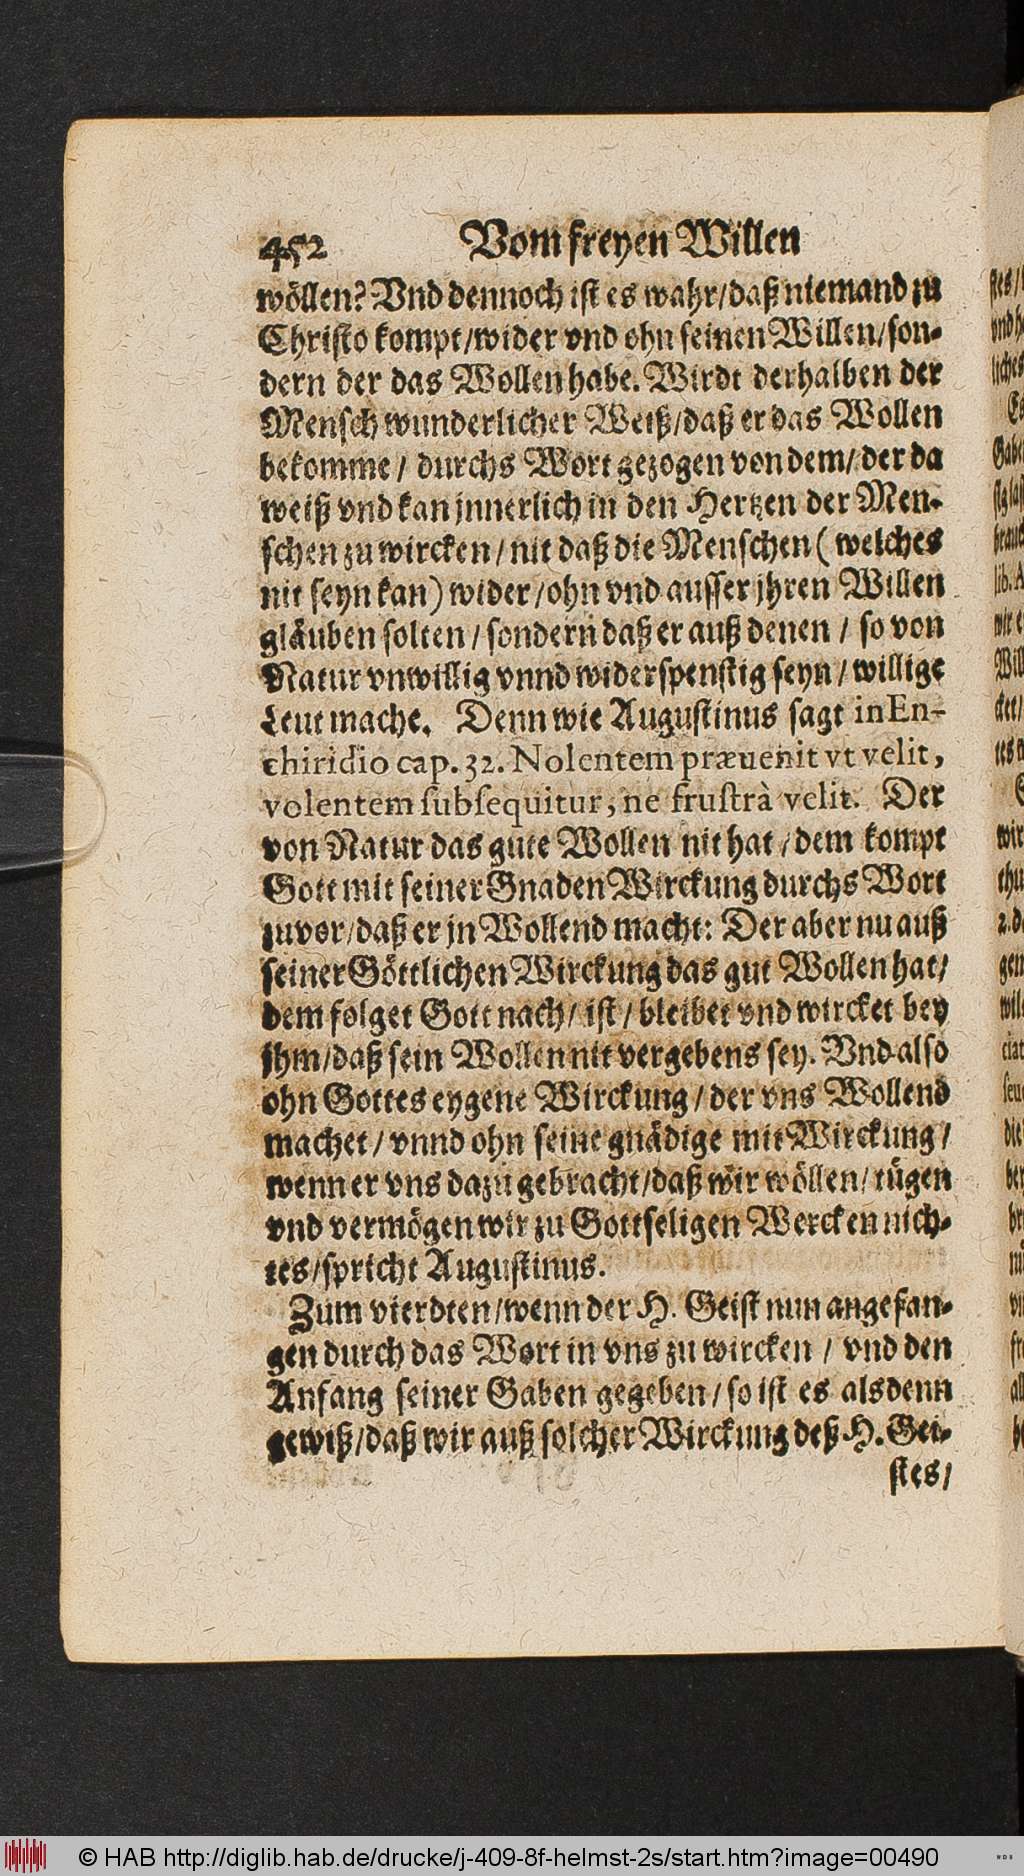 452 Vom freyen Willen
wöllen? Vnd dennoch ist es wahr/daß niemand zu
Christo kompt/wider vnd ohn seinen Willen/son-
dern der das Wollen habe. Wirdt derhalben der
Mensch wunderlicher Weiß/daß er das Wollen
bekomme / durchs Wort gezogen von dem/ der da
weiß vnd kan jnnerlich in den Hertzen der Men-
schen zu wircken / nit daß die Menschen ( welches
nit seyn kan) wider /ohn vnd ausser jhren Willen
gläuben solten / sondern daß er auß denen / so von
Natur vnwillig vnnd widerspenstig seyn / willige
Leut mache. Denn wie Augustinus sagt in En-
chiridio cap. 32. Nolentem præuenit vt velit,
volentem subsequitur, ne frustrà velit. Der
von Natur das gute Wollen nit hat / dem kompt
Gott mit seiner Gnaden Wirckung durchs Wort
zuvor/daß er jn Wollend macht: Der aber nu auß
seiner Göttlichen Wirckung das gut Wollen hat/
dem folget Gott nach/ ist / bleibet vnd wircket bey
jhm/daß sein Wollen nit vergebens sey. Vnd also
ohn Gottes eygene Wirckung / der vns Wollend
machet / vnnd ohn seine gnädige mit Wirckung /
wenn er vns dazu gebracht/daß wir wöllen/ tügen
vnd vermögen wir zu Gottseligen Wercken nich-
tes/spricht Augustinus.
Zum vierdten/wenn der H. Geist nun angefan-
gen durch das Wort in vns zu wircken / vnd den
Anfang seiner Gaben gegeben / so ist es alsdenn
gewiß/daß wir auß solcher Wirckung deß H. Gei-
stes/
© HAB http://diglib.hab.de/drucke/j-409-8f-helmst-2s/start.htm?image=00490